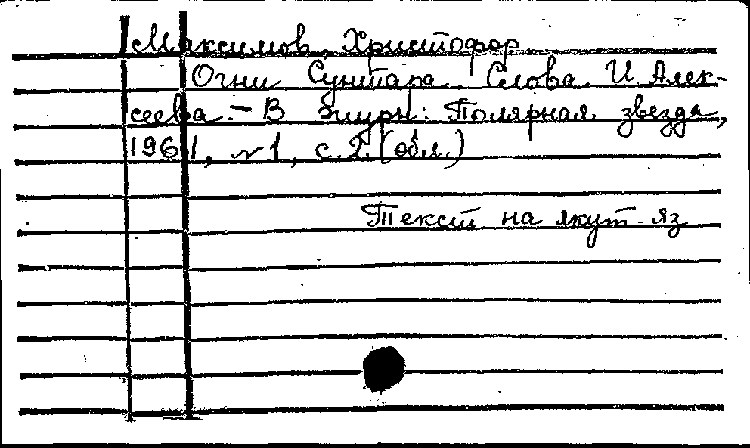 Максимов, Христофор
Огни Сунтара. Слова И. Алек-
сеева. – В журн: Полярная звезда,
1961, №1, с. 2. (обл.)
Текст на якут. яз